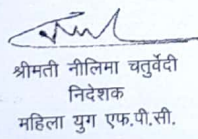 श्रीमती नीलिमा चतुर्वेदी
निदेशक
महिला युग एफ.पी.सी.